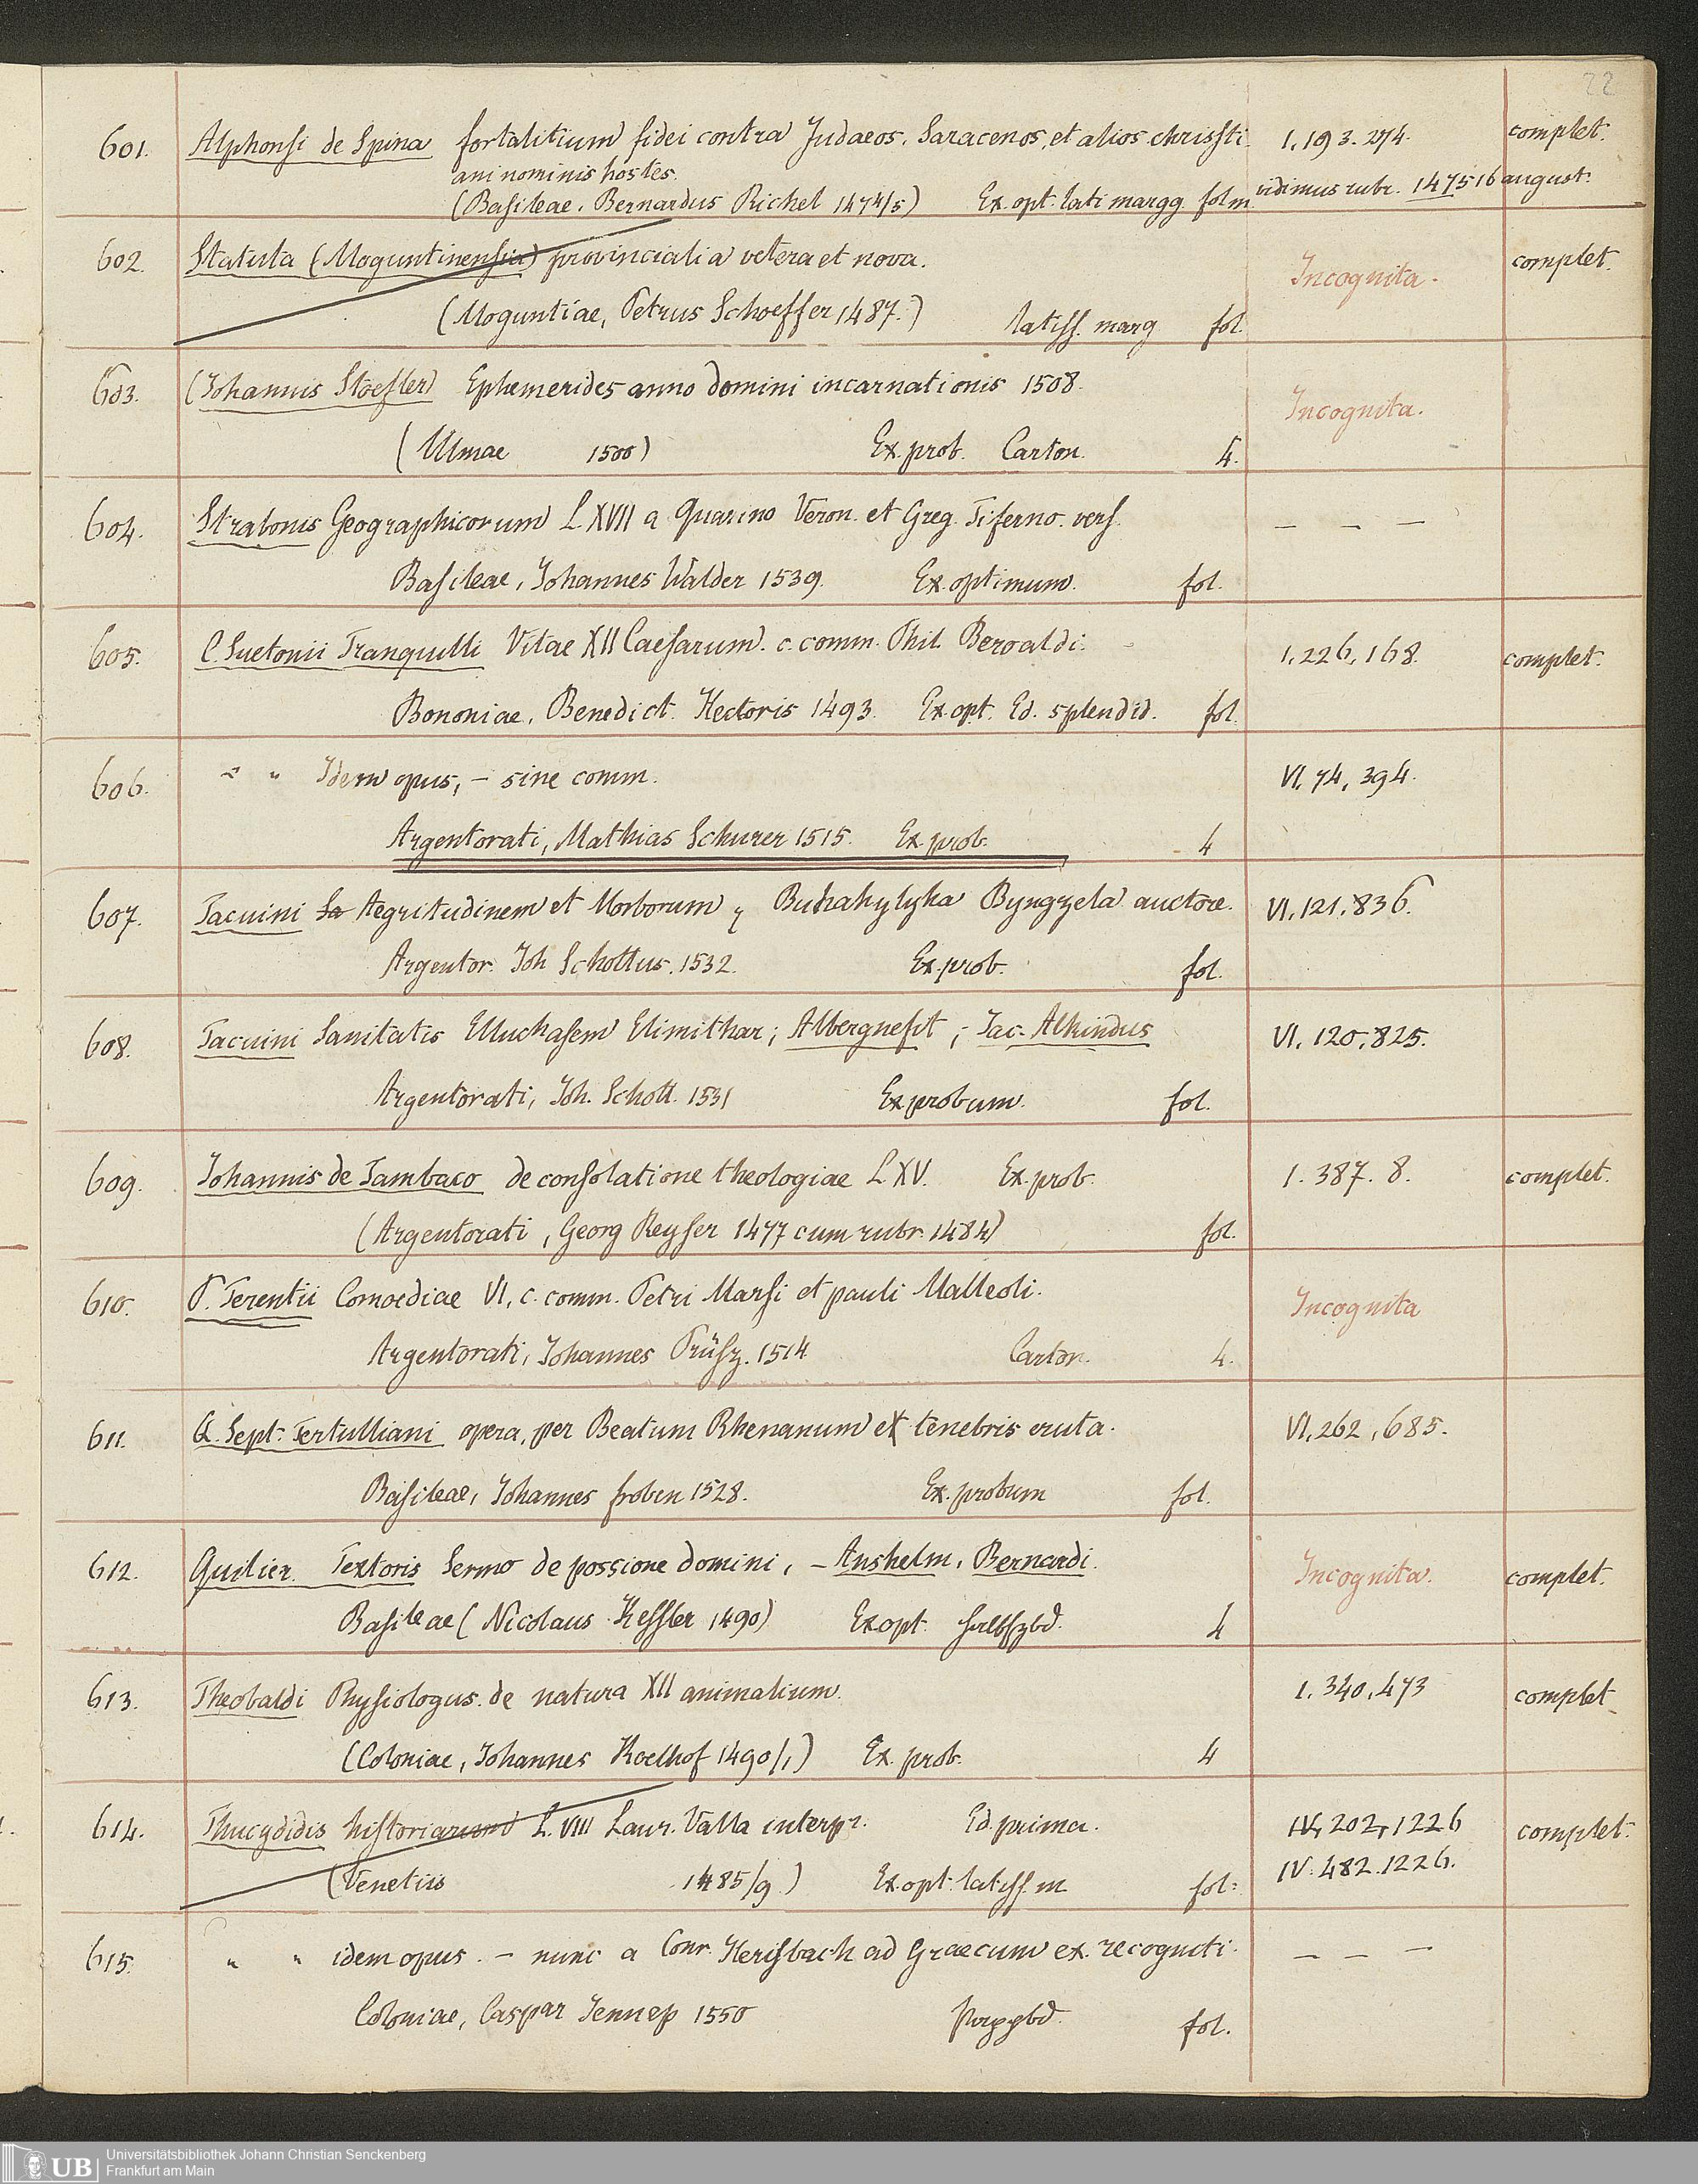 22
601. Alphonsi de Spina fortalitium fidei contra Judaeos, Saracenos, et alios christi- 1. 193. 274. complet.
ani nominis hostes.
(Basileae. Bernardus Richel 1474/5) Ex. opt. lati margg. fol m vidimus rubr. 1475 16 august.
602. Statuta (Moguntinensia) provincialia vetera et nova. Incognita. complet.
(Moguntiae, Petrus Schoeffer 1487.) latiss. marg fol.
603. (Johannis Stoefler) Ephemerides anno domini incarnationis 1508. Incognita.
(Ulmae 1500) Ex. prob. Carton. 4.
604. Strabonis Geographicorum L XVII a Guarino Veron. et Greg. Tiferno. vers. — — —
Basileae, Johannes Walder 1539. Ex. optimum. fol.
605. C. Suetonii Tranquilli Vitae XII Caesarum. c. comm. Phil. Beroaldi. 1. 226, 168. complet.
Bononiae, Benedict. Hectoris 1493. Ex. opt. Ed. splendid. fol.
606. " " Idem opus, – sine comm. VI, 74, 394.
Argentorati, Mathias Schurer 1515. Ex. prob. 4
607. Tacuini Sa Aegritudinem et Morborum, Buhahylyha Byngzela auctore. VI, 121. 836.
Argentor. Joh Schottus. 1532. Ex. prob. fol.
608. Tacuini Sanitatis Elluchasem Elimithar; Albergnefit; Jac. Alkindus VI. 120, 825.
Argentorati, Joh. Schott. 1531 Ex probum. fol.
609. Johannis de Tambaco de consolatione theologiae L XV. Ex. prob. 1. 387. 8. complet.
(Argentorati, Georg Reyser 1477 cum rubr. 1484) fol.
610. P. Terentii Comoediae VI, c. comm. Petri Marsi et pauli Malleoli. Incognita
Argentorati, Johannes Prüsz. 1514 Carton. 4.
611. Q. Sept. Tertulliani opera, per Beatum Rhenanum ex tenebris eruta. VI, 262, 685.
Basileae, Johannes froben 1528. Ex. probum fol.
612. Guilier. Textoris Sermo de possione domini, – Anshelm, Bernardi. Incognita. complet.
Basileae (Nicolaus Kessler 1490) Ex opt. halbfzbd. 4
613. Theobaldi Physiologus. de natura XII animalium. 1. 340, 473 complet
(Coloniae, Johannes Koelhof 1490/1) Ex. prob. 4
614. Thucydidis historiarum L. VIII Laur. Valla interpr. Ed. prima. IV, 202, 1226 complet.
(Venetiis 1485/9.) Ex. opt. latiss. m fol. IV. 482. 1226.
615. " " idem opus. – nunc a Conr. Herisbach ad Graecum ex. recogniti. — — —
Coloniae, Caspar Jennep 1550 Pappbd. fol.
UB Universitätsbibliothek Johann Christian Senckenberg
Frankfurt am Main